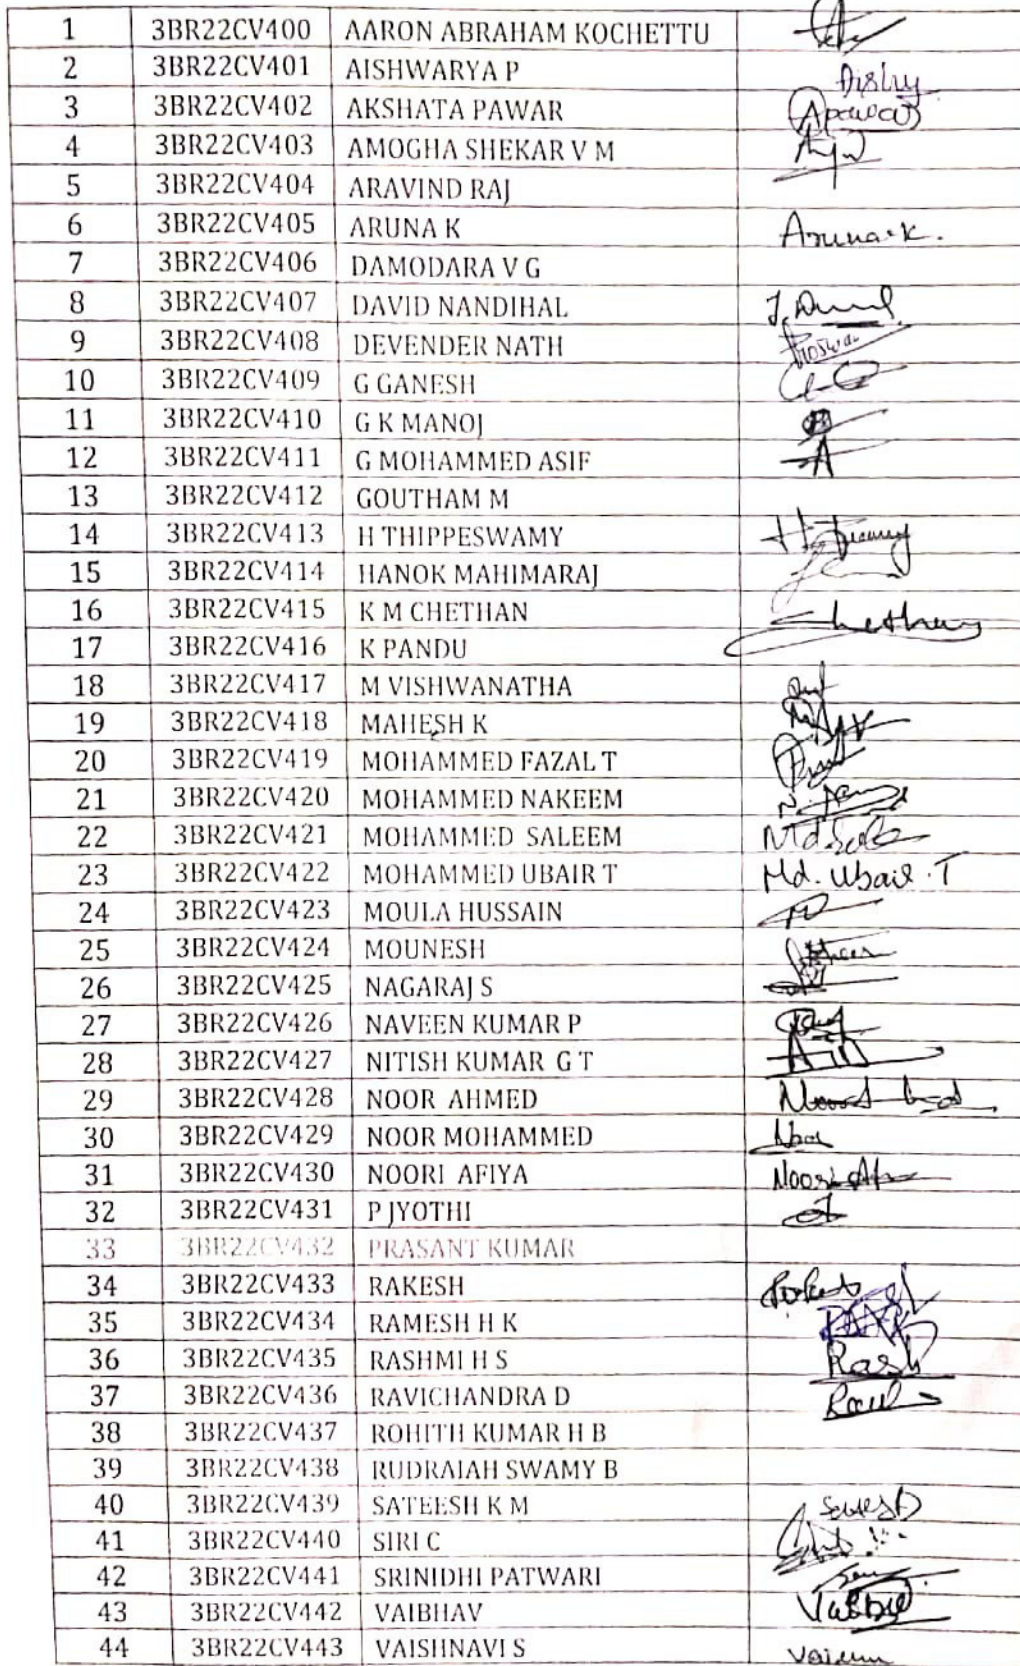 1 3BR22CV400 AARON ABRAHAM KOCHETTU
2 3BR22CV401 AISHWARYA P
3 3BR22CV402 AKSHATA PAWAR Apawar
4 3BR22CV403 AMOGHA SHEKAR V M
5 3BR22CV404 ARAVIND RAJ
6 3BR22CV405 ARUNA K Aruna.K.
7 3BR22CV406 DAMODARA V G
8 3BR22CV407 DAVID NANDIHAL
9 3BR22CV408 DEVENDER NATH
10 3BR22CV409 G GANESH
11 3BR22CV410 G K MANOJ
12 3BR22CV411 G MOHAMMED ASIF
13 3BR22CV412 GOUTHAM M
14 3BR22CV413 H THIPPESWAMY
15 3BR22CV414 HANOK MAHIMARAJ
16 3BR22CV415 K M CHETHAN Chethan
17 3BR22CV416 K PANDU
18 3BR22CV417 M VISHWANATHA
19 3BR22CV418 MAHESH K
20 3BR22CV419 MOHAMMED FAZAL T
21 3BR22CV420 MOHAMMED NAKEEM
22 3BR22CV421 MOHAMMED SALEEM
23 3BR22CV422 MOHAMMED UBAIR T Md. Ubair .T
24 3BR22CV423 MOULA HUSSAIN
25 3BR22CV424 MOUNESH
26 3BR22CV425 NAGARAJ S
27 3BR22CV426 NAVEEN KUMAR P
28 3BR22CV427 NITISH KUMAR G T
29 3BR22CV428 NOOR AHMED
30 3BR22CV429 NOOR MOHAMMED Noor
31 3BR22CV430 NOORI AFIYA
32 3BR22CV431 P JYOTHI
33 3BR22CV432 PRASANT KUMAR
34 3BR22CV433 RAKESH
35 3BR22CV434 RAMESH H K
36 3BR22CV435 RASHMI H S
37 3BR22CV436 RAVICHANDRA D
38 3BR22CV437 ROHITH KUMAR H B
39 3BR22CV438 RUDRAIAH SWAMY B
40 3BR22CV439 SATEESH K M
41 3BR22CV440 SIRI C
42 3BR22CV441 SRINIDHI PATWARI
43 3BR22CV442 VAIBHAV
44 3BR22CV443 VAISHNAVI S